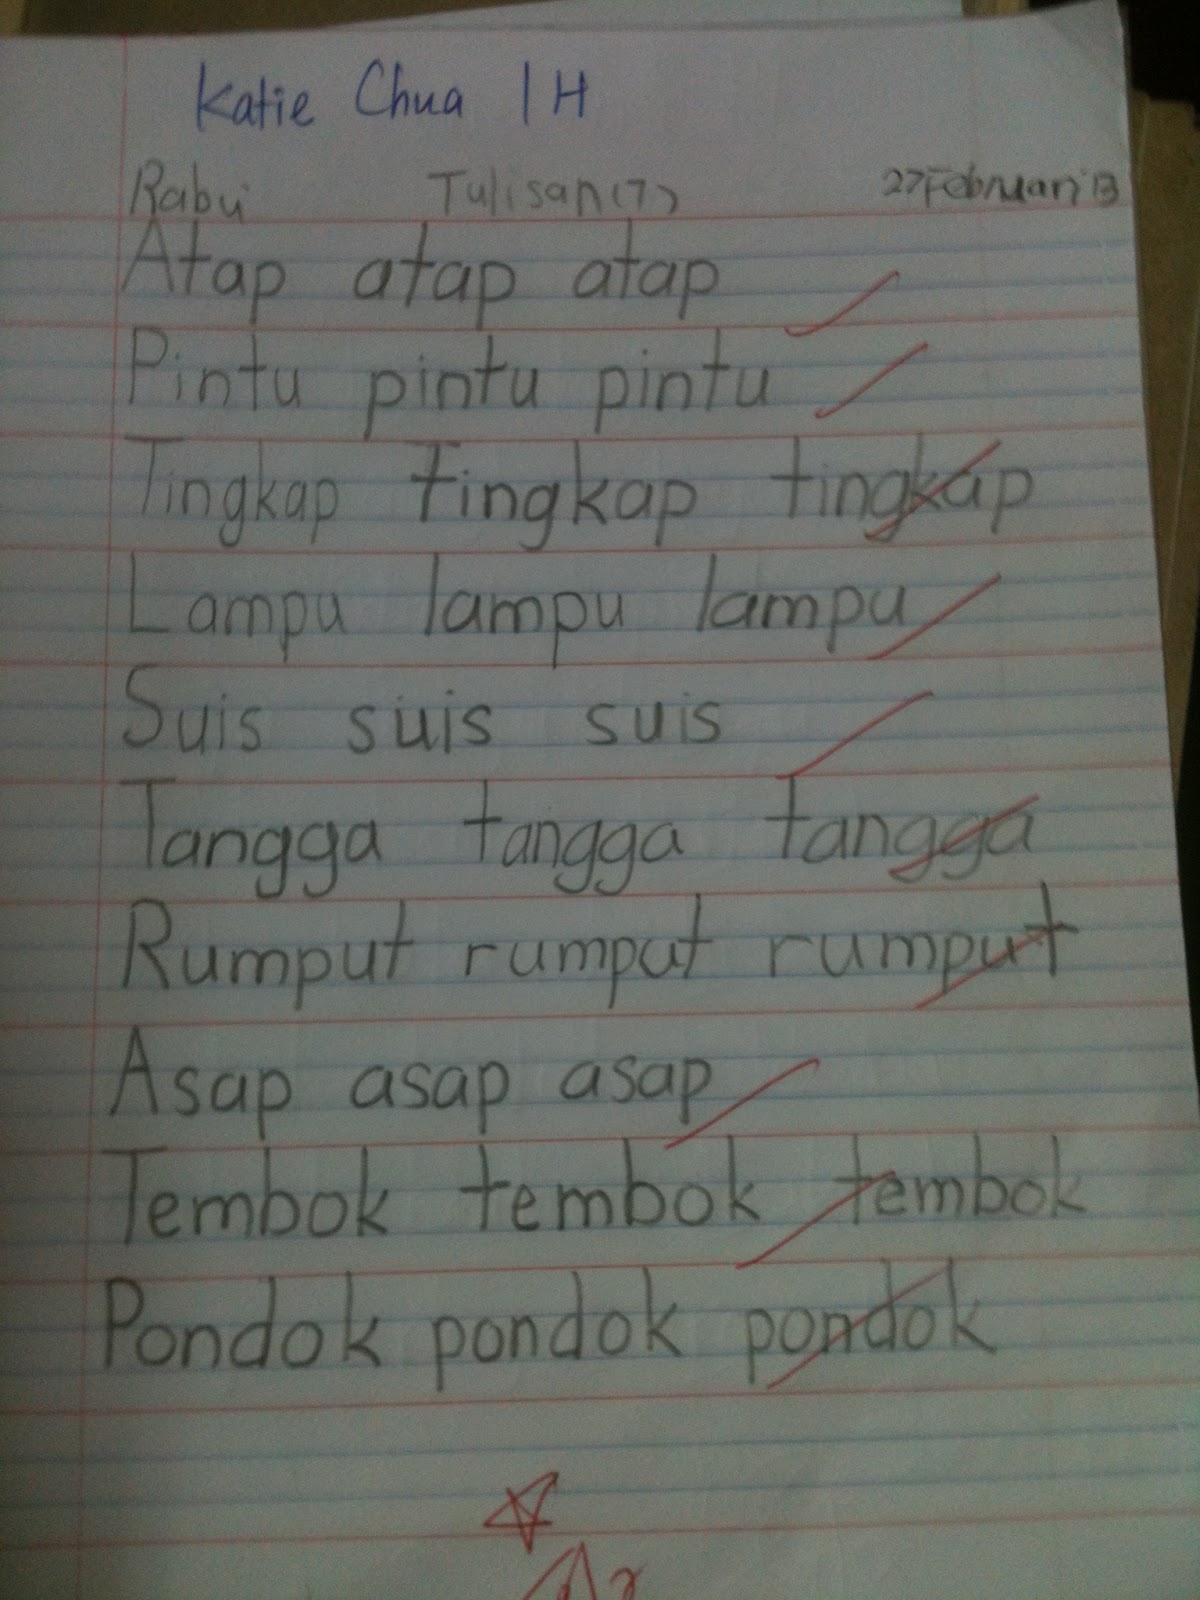 Katie Chua 1H
Rabu Tulisan (7) 27 Februari '13
Atap atap atap
Pintu pintu pintu
Tingkap tingkap tingkap
Lampu lampu lampu
Suis suis suis
Tangga tangga tangga
Rumput rumput rumput
Asap asap asap
Tembok tembok tembok
Pondok pondok pondok